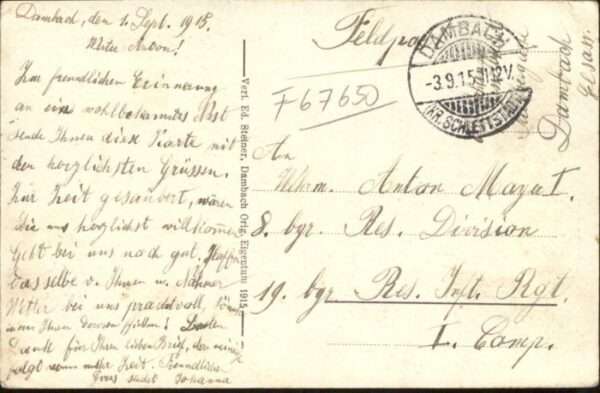 Dambach, den 2. Sept. 1915.
Mein Anton!
Zur freundlichen Erinnerung
an ein wohlbekanntes Nest
sende Ihnen diese Karte mit
den herzlichsten Grüssen.
Zur Zeit gesäubert, wären
Sie uns herzlichst willkommen
Geht bei uns noch gut, Hoffe
dasselbe v. Ihnen u.
Wetter bei uns prachtvoll,
Ihnen davon
Dank für Ihren lieben Brief, der meine
folgt wenn mehr Zeit. Freundlichen
Gruss sendet Johanna
Verl. Ed. Steiner, Dambach Orig. Eigentum 1915
Feldpost
F 67650
DAMBACH
-3.9.15. 11-12V.
(KR. SCHLETTSTADT)
Dambach
Elsass.
An
Wehrm. Anton Mayer I.
8. bgr Res. Division
19. bgr Res. Inft. Rgt.
I. Comp.